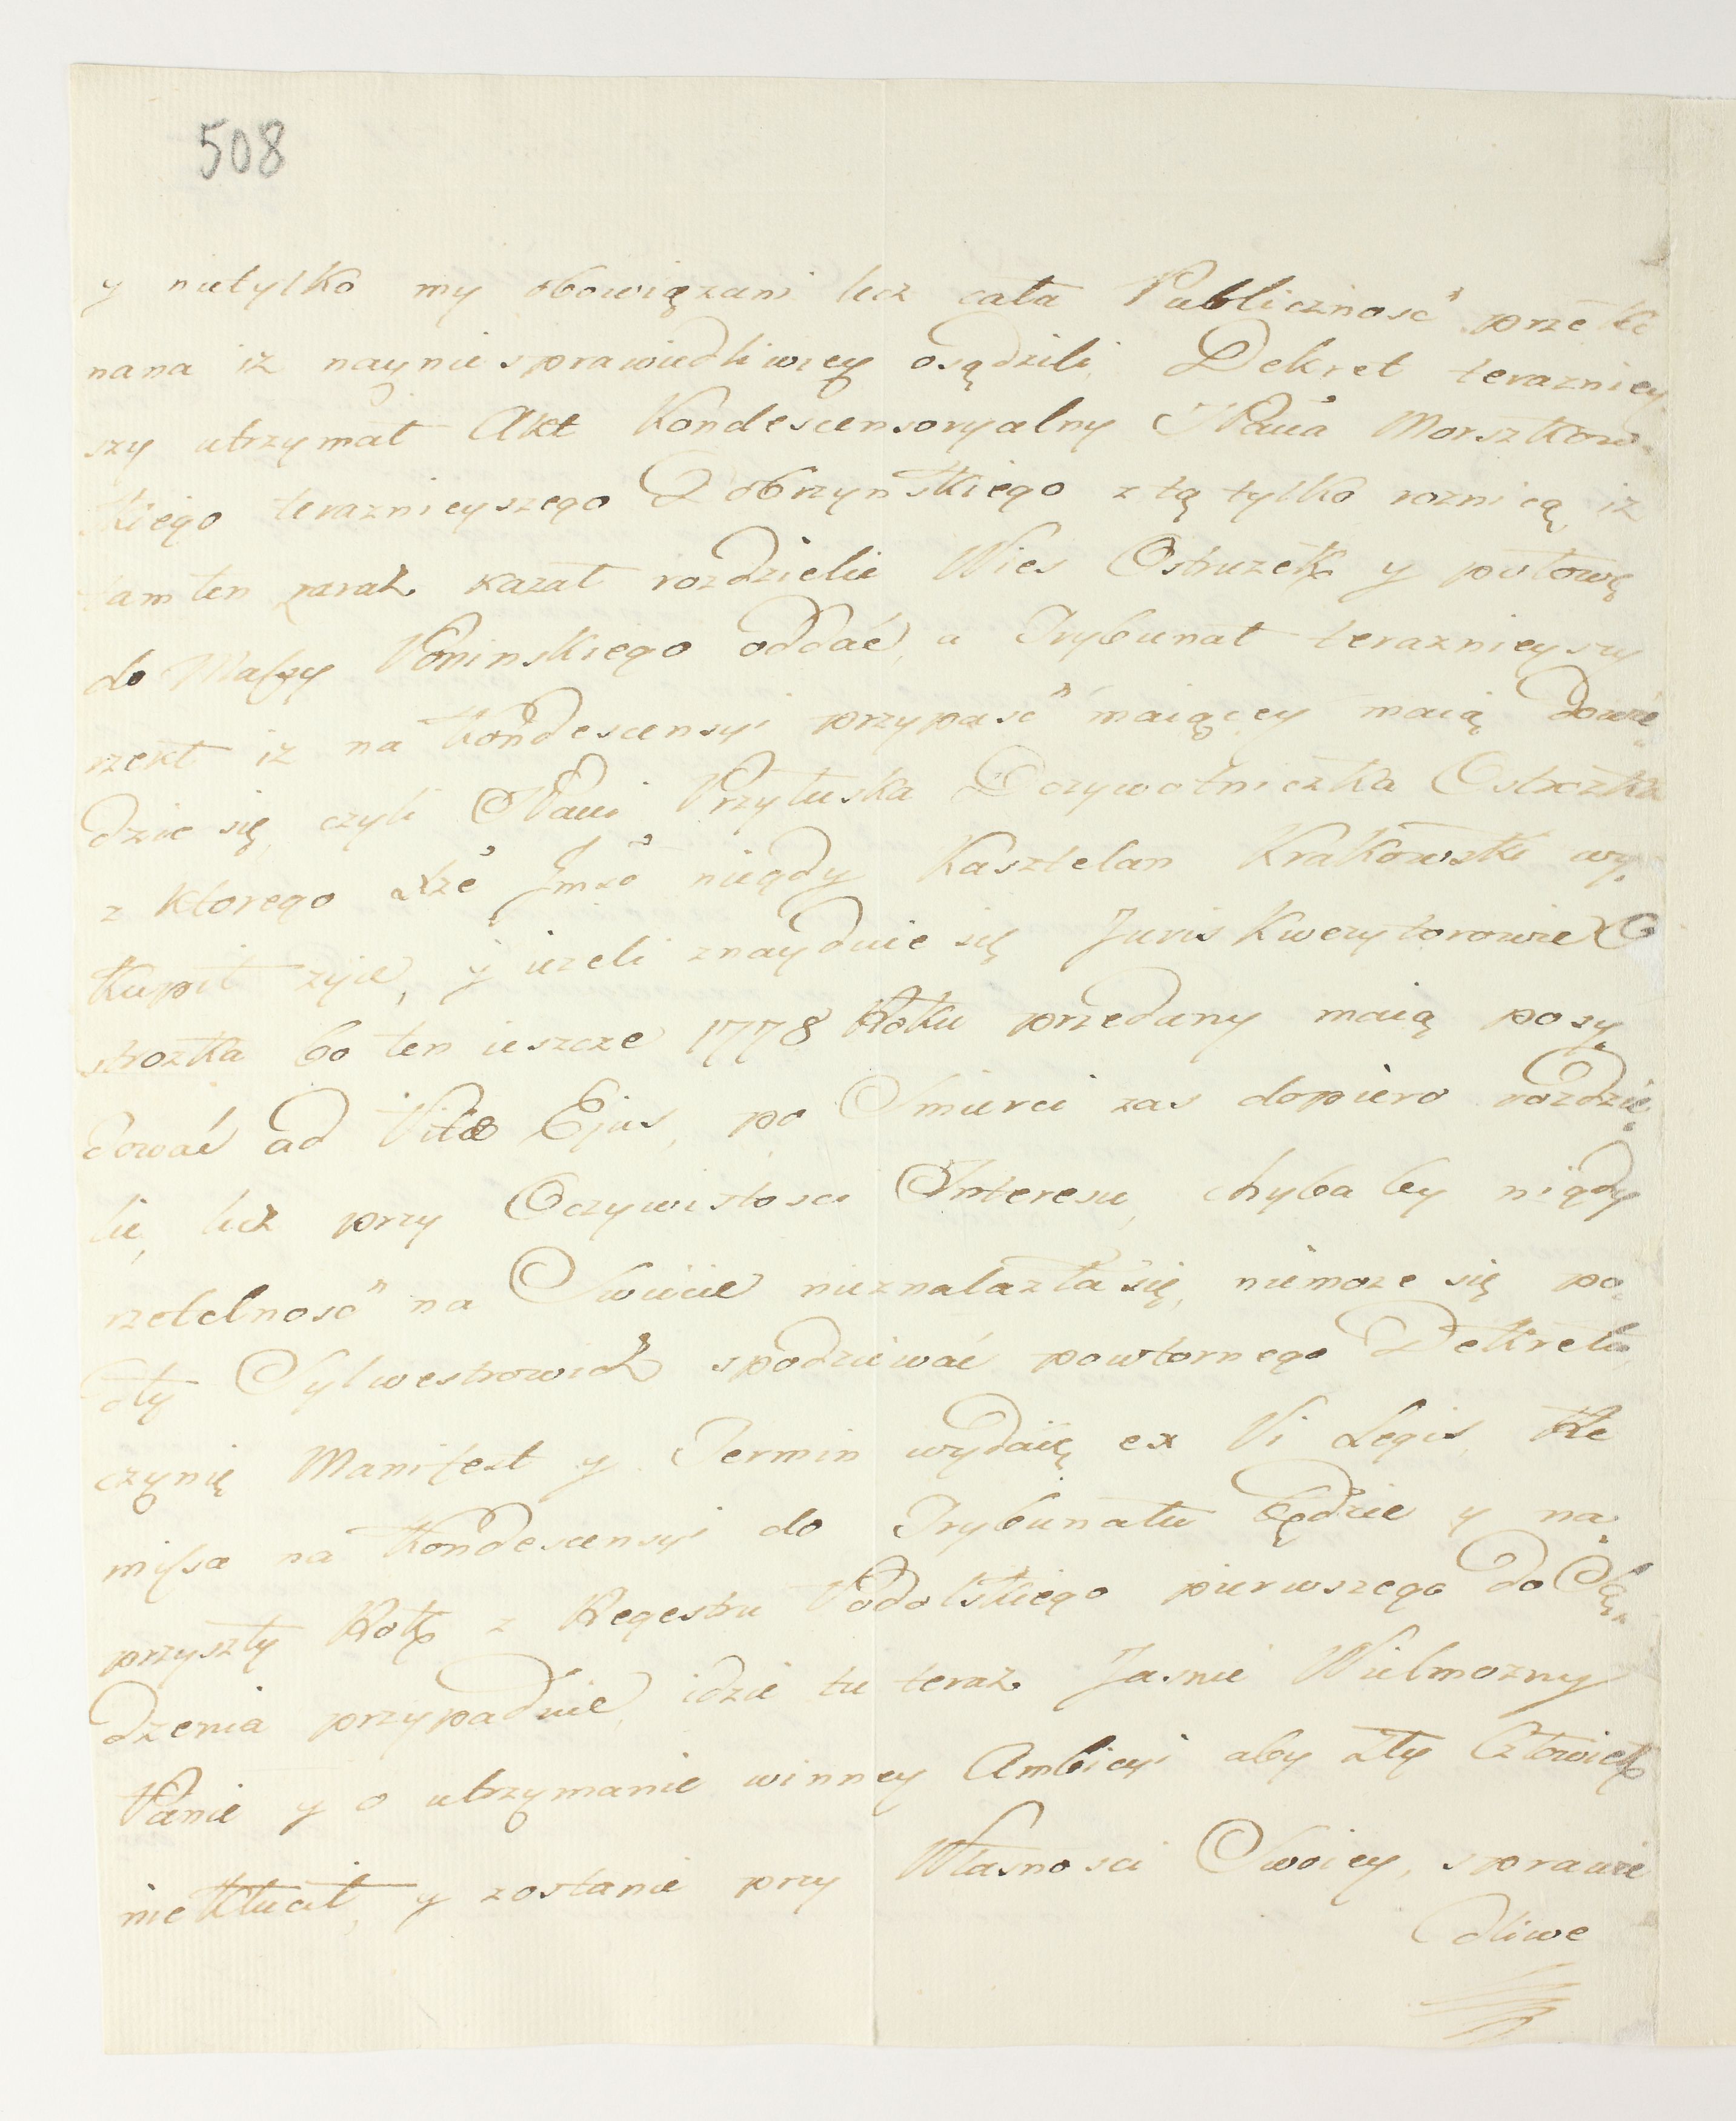 508
y nietylko my obowiązani lecz cała Publicznosć przeko
nana iz nayniesprawiedliwiey osądzili, Dekret terazniey
szy utrzymał Akt Kondescensoryalny JPana Morsztkow-
skiego teraznieyszego Dobrzynskiego z tą tylko roznicą iz
tamten zaraz kazał rozdzielic Wies Ostruzek y połowę
do Massy Poninskiego oddać, a Trybunał teraznieyszy
rzekł iz na Kondescensyi przypasć maiącey maią dowie
dzic się, czyli JPani Przyłuska Dozywotniczka Ostrozka
z ktorego Xże Jmść niegdy Kasztelan Krakowski wy-
kupił zyie, y iezeli znayduie się Juris Kwezytorowie O
strozka bo ten ieszcze 1778 Roku przedany maią posy
dować ad Vitæ Ejus, po Smierci zas dopiero rozdzie
lic, lecz przy Oczywistosci Interesu, chyba by nigdy
rzetelnosć na Swiecie nieznalazła się, niemoze się po-
dły Sylwestrowicz spodziewać powtornego Dekretu
czynię Manifest y Termin wydaię ex Vi Legis, Re
missa na Kondescensyi do Trybunału będzie y na
przyszły Rok z Regestru Podolskiego pierwszego do Są-
dzenia przypadnie, idzie tu teraz Jasnie Wielmozny
Panie y o utrzymanie winney Ambicyi aby zły Człowiek
niekłucił, y zostanie przy Własnosci Swoiey, sprawie
dliwe